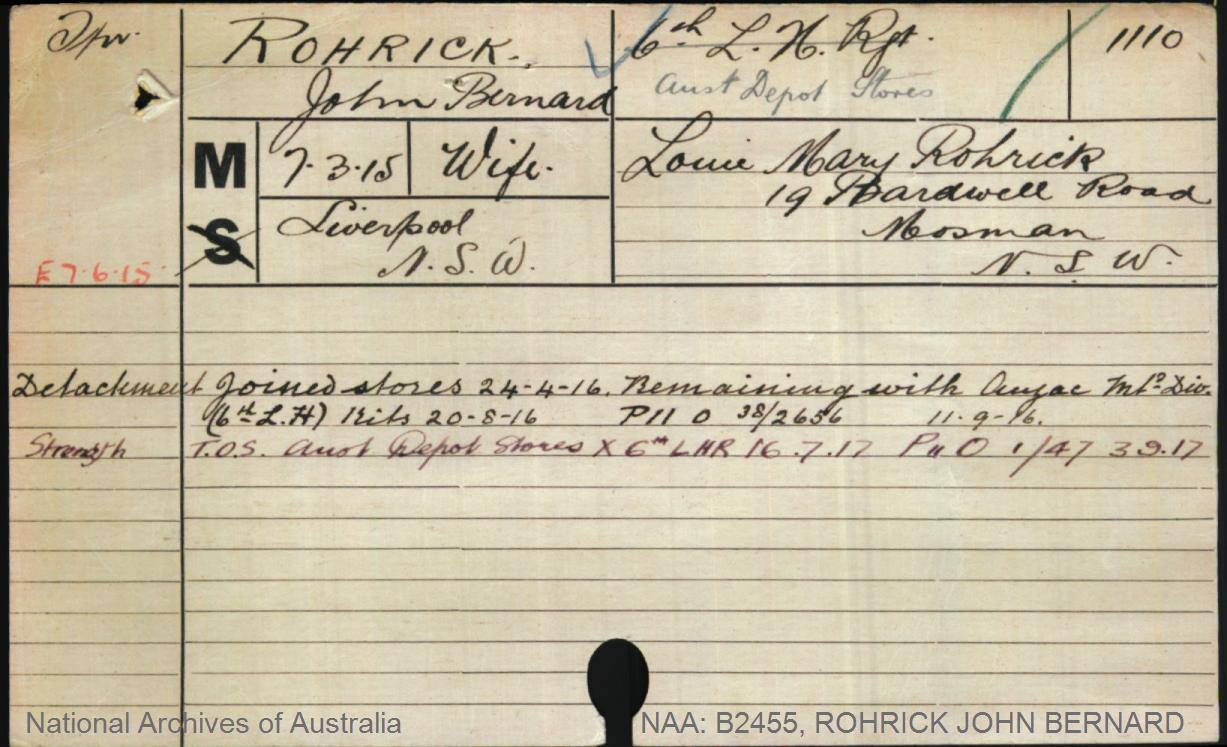 Tpr.
ROHRICK.
John Bernard
6th L. H. Rgt.
Aust Depot Stores
1110
M
S
7.3.15
Wife.
Liverpool
N. S. W.
Louie Mary Rohrick
19 Bardwell Road
Mosman
N. S. W.
E 7.6.15
Detachment Joined stores 24-4-16. Remaining with Anzac Mtd Div.
(6th L.H) Kits 20-8-16 PII O 38/2656 11.9-16.
Strength T.O.S. Aust Depot Stores X 6th LHR 16.7.17 PII O 1/47 3.9.17
National Archives of Australia
NAA: B2455, ROHRICK JOHN BERNARD